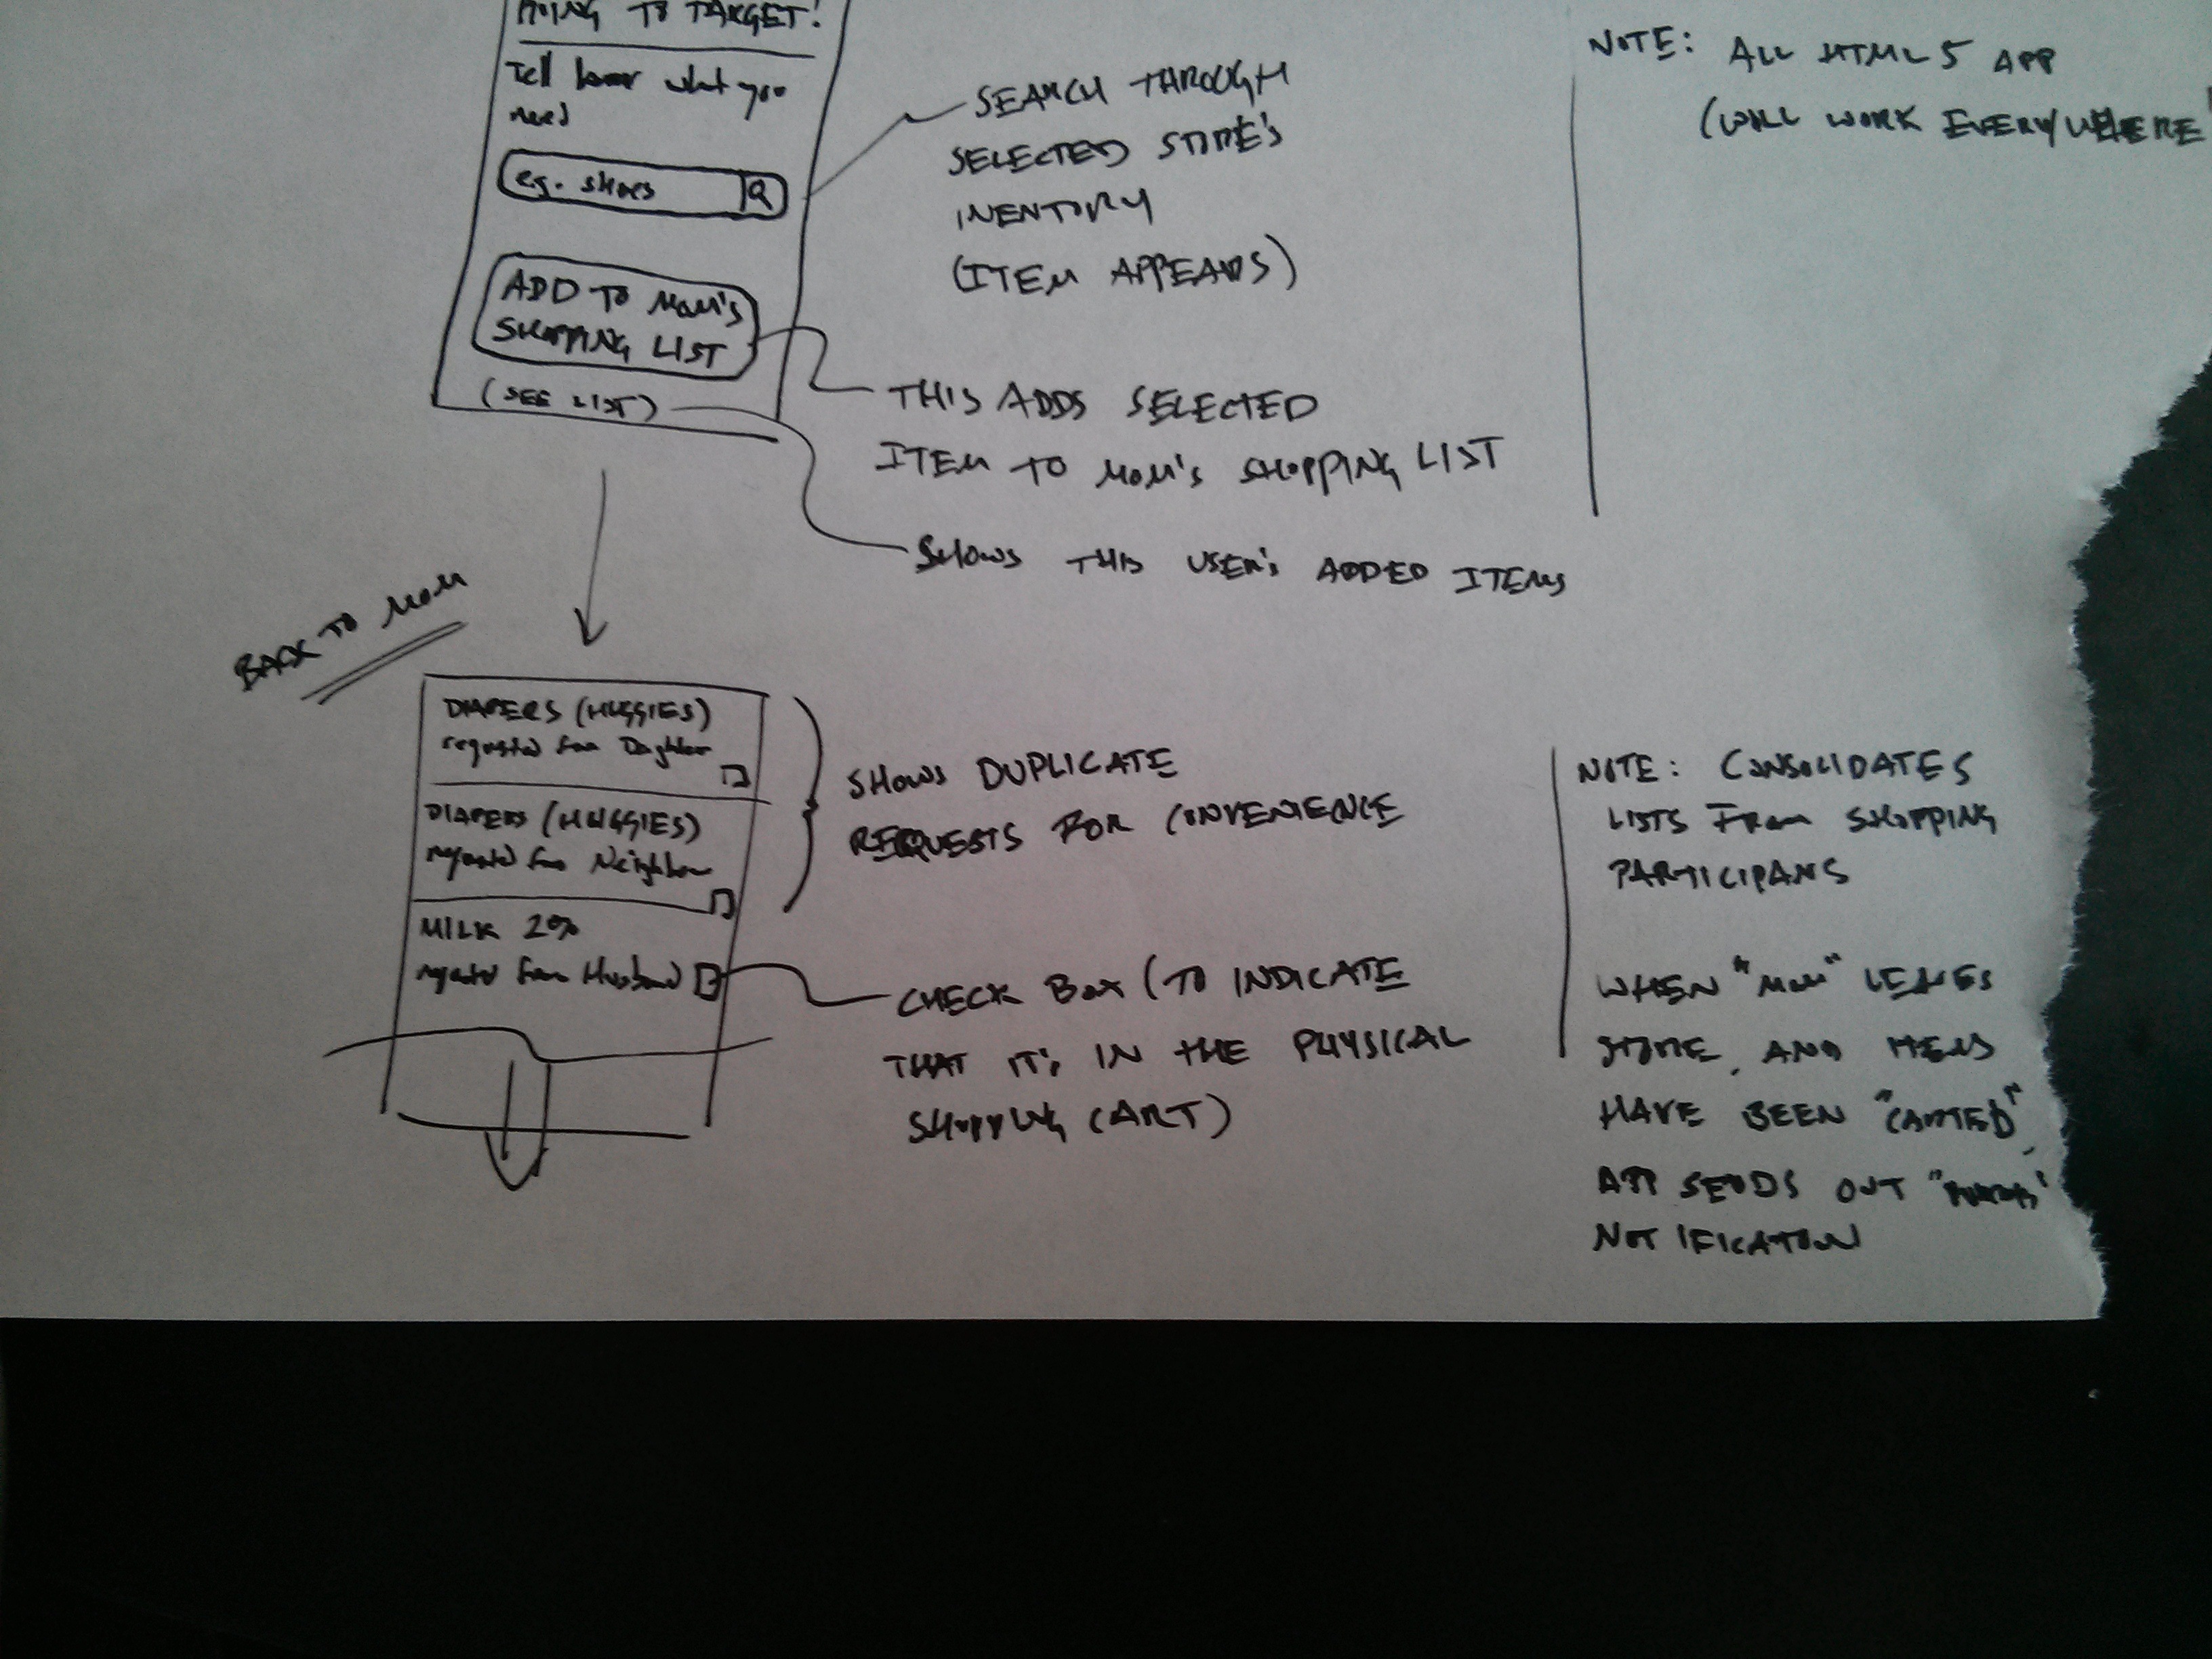 GOING TO TARGET!
Tell her what you
need
eg. shoes
ADD TO MOM'S
SHOPPING LIST
(SEE LIST)
SEARCH THROUGH
SELECTED STORE'S
INENTORY
(ITEM APPEARS)
THIS ADDS SELECTED
ITEM TO MOM'S SHOPPING LIST
SHOWS THIS USER'S ADDED ITEMS
NOTE: ALL HTML5 APP
(WILL WORK EVERYWHERE
BACK TO MOM
DIAPERS (HUGGIES)
requested from Daughter
DIAPERS (HUGGIES)
requested from Neighbor
MILK 2%
requested from Husband
SHOWS DUPLICATE
REQUESTS FOR CONVENIENCE
CHECK BOX (TO INDICATE
THAT IT'S IN THE PHYSICAL
SHOPPING CART)
NOTE: CONSOLIDATES
LISTS FROM SHOPPING
PARTICIPANS
WHEN "MOM" LEAVES
STORE, AND ITEMS
HAVE BEEN "CARTED",
APP SENDS OUT
NOTIFICATION